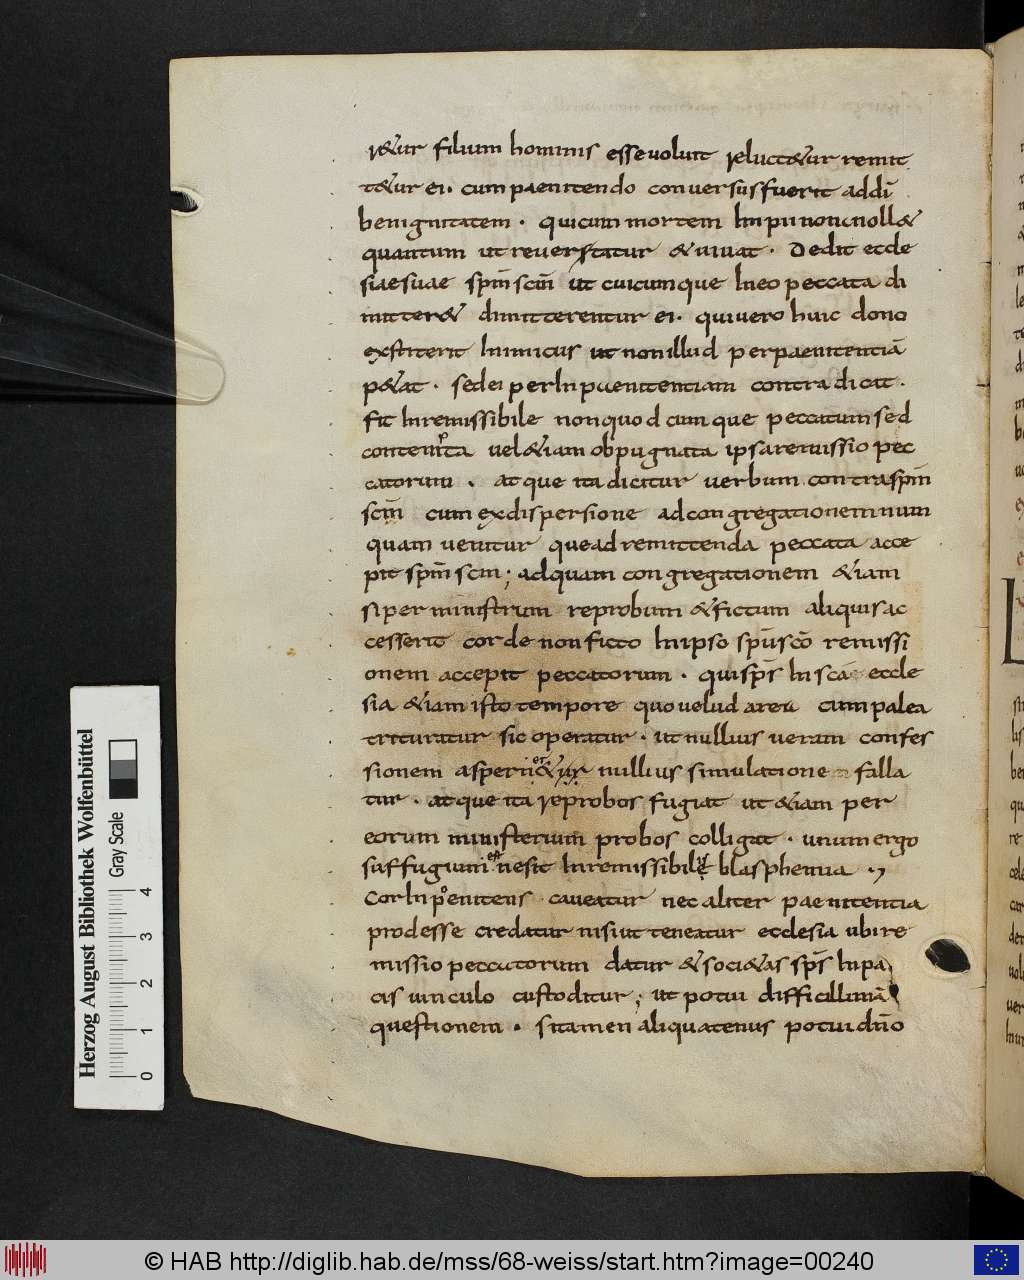 r&ur filium hominis esse uoluit reluct&ur remit
t&ur ei. cum paenitendo conuersus fuerit addi
benignitatem . quicum mortem inpii non noll&
quantum ut reuertatur & uiuat . Dedit eccle
siae suae spm̄ scm̄ ut cuicumque in eo peccata di
mitter& dimitterentur ei. qui uero huic dono
exstiterit inimicus ut non illud per paenitentiā
p&at . sed ei per inpaenitentiam contradicat .
fit inremissibile non quodcumque peccatum sed
contempta uel &iam obpugnata ipsa remissio pec
catorum . atque ita dicitur uerbum contra spm̄
scm̄ cum ex dispersione ad congregationem num
quam uenitur que ad remittenda peccata acce
pit spm̄ scm̄ ; ad quam congregationem &iam
si per ministrum reprobum & fictum aliquis ac
cesserit corde non ficto in ipso spū scō remissi
onem accepit peccatorum . qui sps̄ in scā eccle
sia &iam isto tempore quo uelud area cum palea
trituratur sic operatur . ut nullius ueram confes
sionem aspern&ur nullius simulatione falla
tur . atque ita reprobos fugiat ut &iam per
eorum ministerium probos colligat . unum ergo
suffugium est ne sit inremissibilis blasphemia
Cor inpenitens caueatur nec aliter paenitentia
prodesse credatur nisi ut teneatur ecclesia ubi re
missio peccatorum datur & soci&as sps̄ in pa
cis uinculo custoditur ; ut potui difficillimā
questionem . si tamen aliquatenus potui dn̄o
Herzog August Bibliothek Wolfenbüttel
Gray Scale
0 1 2 3 4
© HAB http://diglib.hab.de/mss/68-weiss/start.htm?image=00240